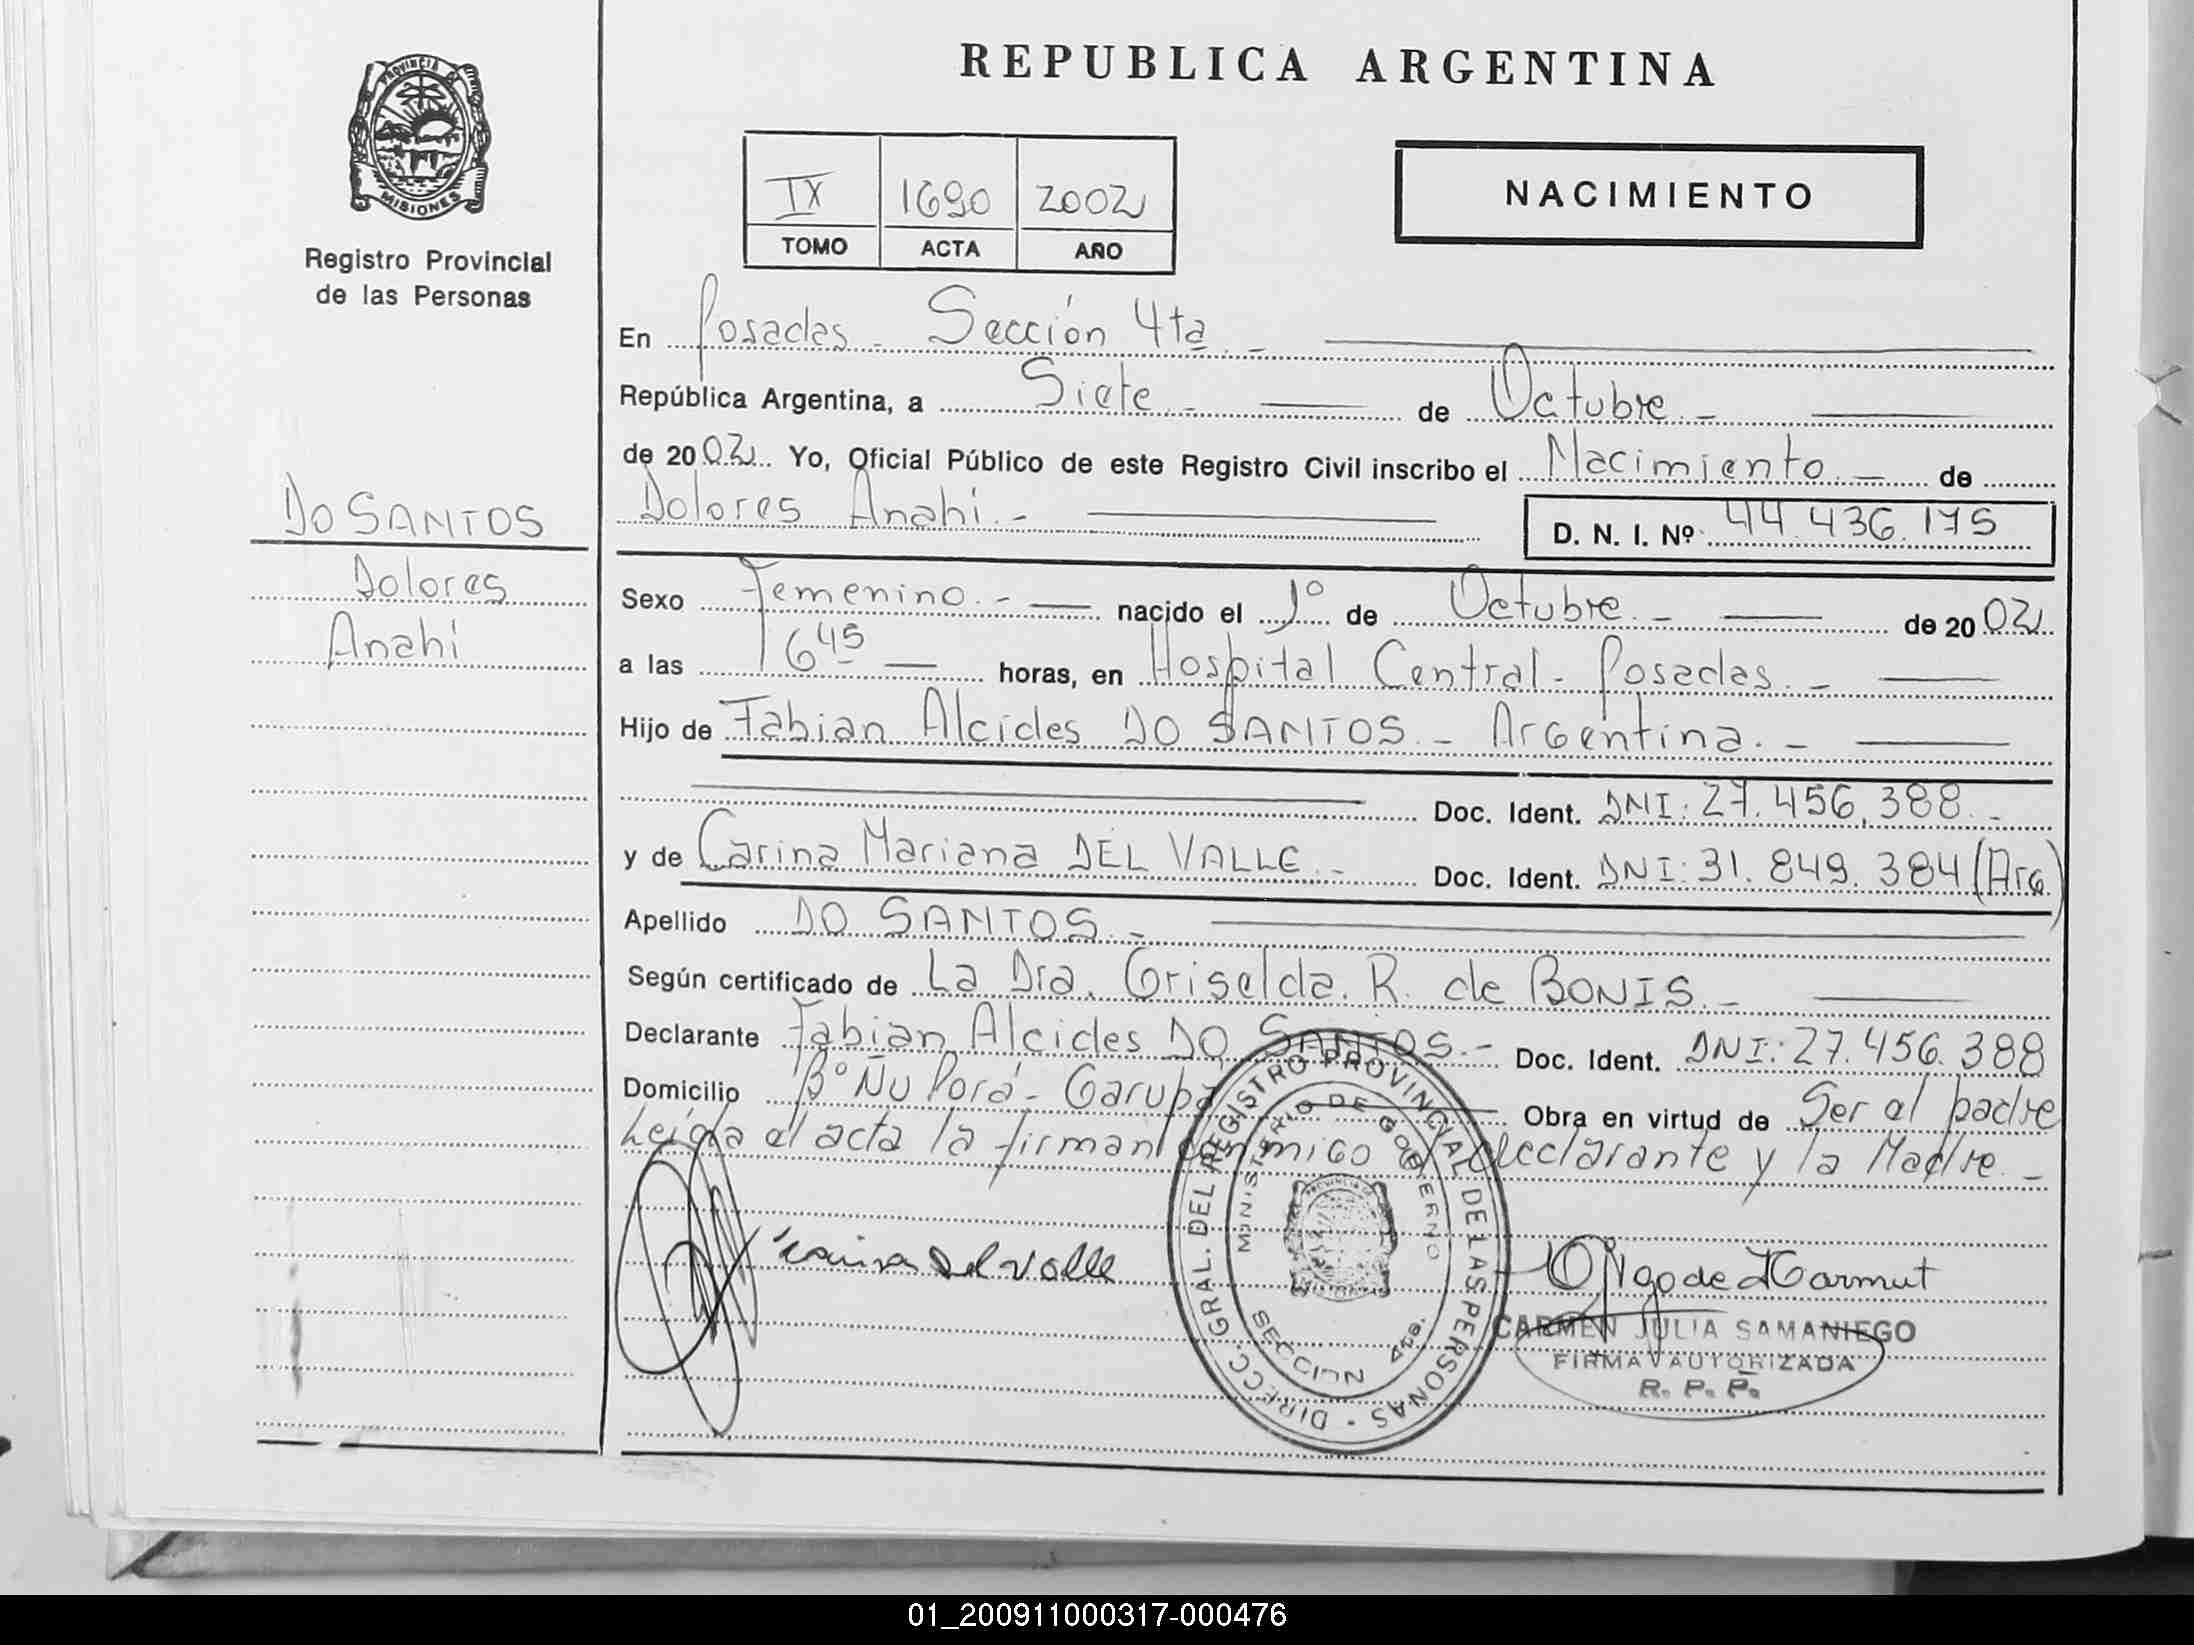 PROVINCIA DE
MISIONES
Registro Provincial
de las Personas
DO SANTOS
Dolores
Anahi
REPUBLICA ARGENTINA
IX 1690 2002
TOMO ACTA AÑO
NACIMIENTO
En Posadas - Sección 4ta. -
República Argentina, a Siete - de Octubre. -
de 2002. Yo, Oficial Público de este Registro Civil inscribo el Nacimiento. - de
Dolores Anahi. - D. N. I. Nº 44.436.175
Sexo Femenino. - nacido el 1º de Octubre. - de 2002.
a las 16 45 horas, en Hospital Central - Posadas. -
Hijo de Fabian Alcides DO SANTOS. - Argentina. -
Doc. Ident. DNI: 27.456.388. -
y de Carina Mariana DEL VALLE. - Doc. Ident. DNI: 31.849.384 (Arg.)
Apellido DO SANTOS. -
Según certificado de La Dra. Griselda. R. de BONIS. -
Declarante Fabian Alcides DO SANTOS. - Doc. Ident. DNI: 27.456.388
Domicilio Bº Ñu Porá - Garupá Obra en virtud de Ser el padre
Leida el acta la firman conmigo el declarante y la Madre. -
Carina Del Valle
DIRECC. GRAL. DEL REGISTRO PROVINCIAL DE LAS PERSONAS
MINISTERIO DE GOBIERNO
SECCION 4ta.
CARMEN JULIA SAMANIEGO
FIRMA AUTORIZADA
R. P. P.
01_200911000317-000476